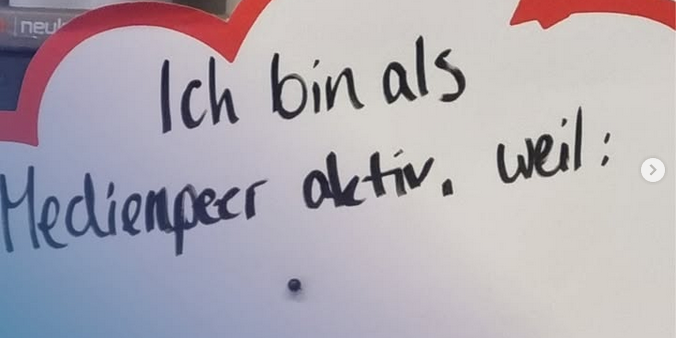 neul
Ich bin als
Medienpeer aktiv, weil: